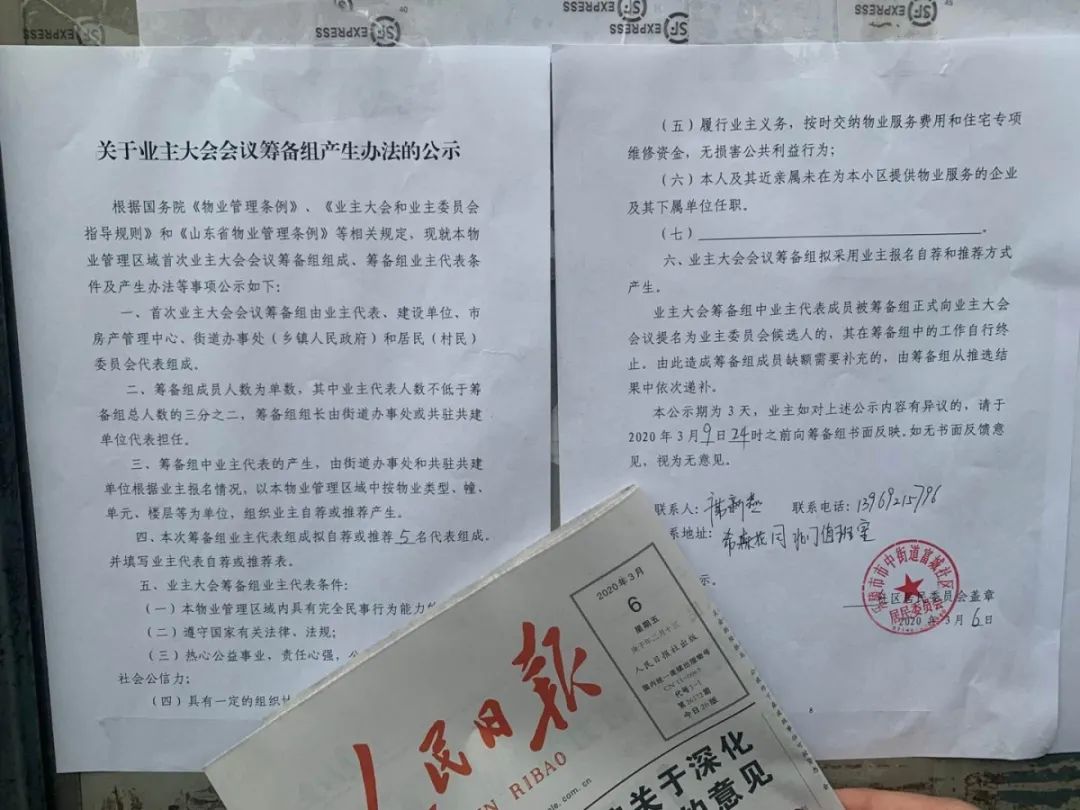 SF EXPRESS
SF EXPRESS
SF EXPRESS
SF EXPRESS
关于业主大会会议筹备组产生办法的公示
根据国务院《物业管理条例》、《业主大会和业主委员会
指导规则》和《山东省物业管理条例》等相关规定，现就本物
业管理区域首次业主大会会议筹备组组成、筹备组业主代表条
件及产生办法等事项公示如下：
一、首次业主大会会议筹备组由业主代表、建设单位、市
房产管理中心、街道办事处（乡镇人民政府）和居民（村民）
委员会代表组成。
二、筹备组成员人数为单数，其中业主代表人数不低于筹
备组总人数的三分之二，筹备组组长由街道办事处或共驻共建
单位代表担任。
三、筹备组中业主代表的产生，由街道办事处和共驻共建
单位根据业主报名情况，以本物业管理区域中按物业类型、幢、
单元、楼层等为单位，组织业主自荐或推荐产生。
四、本次筹备组业主代表组成拟自荐或推荐5名代表组成。
并填写业主代表自荐或推荐表。
五、业主大会筹备组业主代表条件：
（一）本物业管理区域内具有完全民事行为能力
（二）遵守国家有关法律、法规；
（三）热心公益事业，责任心强，
社会公信力；
（四）具有一定的组织
（五）履行业主义务，按时交纳物业服务费用和住宅专项
维修资金，无损害公共利益行为；
（六）本人及其近亲属未在为本小区提供物业服务的企业
及其下属单位任职。
（七）
六、业主大会会议筹备组拟采用业主报名自荐和推荐方式
产生。
业主大会筹备组中业主代表成员被筹备组正式向业主大会
会议提名为业主委员会候选人的，其在筹备组中的工作自行终
止。由此造成筹备组成员缺额需要补充的，由筹备组从推选结
果中依次递补。
本公示期为3天，业主如对上述公示内容有异议的，请于
2020年3月9日24时之前向筹备组书面反映。如无书面反馈意
见，视为无意见。
联系人： 联系电话：13969215796
系地址： 北门值班室
示。
社区居民委员会盖章
2020年3月6日
市市中街道富城社区
居民委员会
8
人民日报
RIBAO
2020年3月
6
星期五
庚子年二月十三
人民日报社出版
国内统一连续出版物号
代号1-1
今日20版
关于深化
的意见